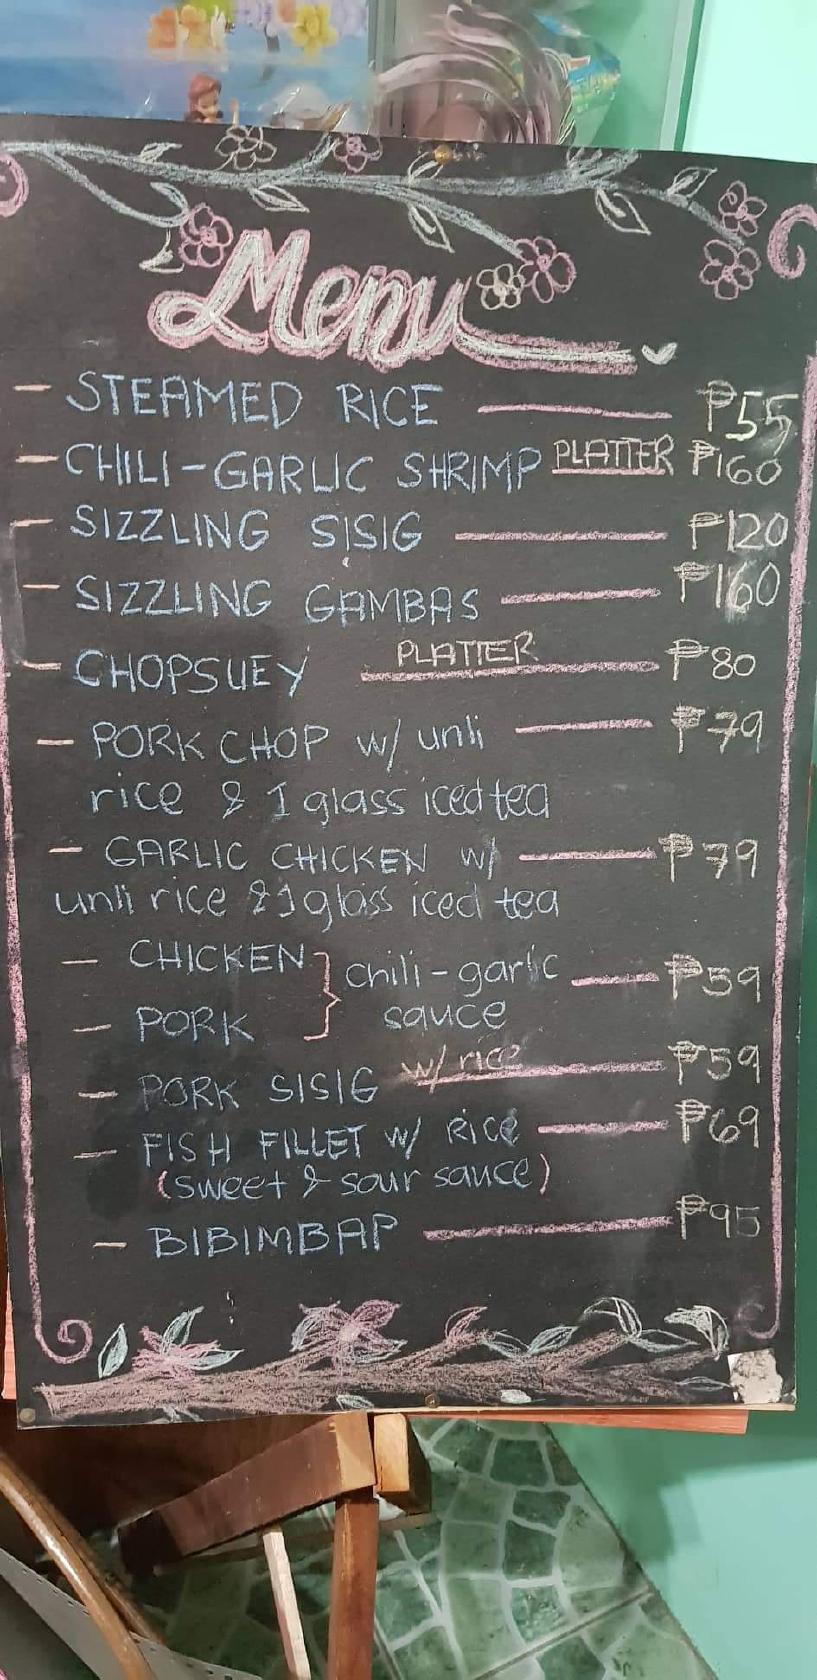 Menu
- STEAMED RICE ₱55
- CHILI-GARLIC SHRIMP PLATTER ₱160
- SIZZLING SISIG ₱120
- SIZZLING GAMBAS ₱160
- CHOPSUEY PLATTER ₱80
- PORK CHOP w/ unli ₱79
rice & 1 glass iced tea
- GARLIC CHICKEN w/ ₱79
unli rice & 1 glass iced tea
- CHICKEN } chili-garlic ₱59
- PORK sauce
- PORK SISIG w/ rice ₱59
- FISH FILLET w/ RICE ₱69
(sweet & sour sauce)
- BIBIMBAP ₱95